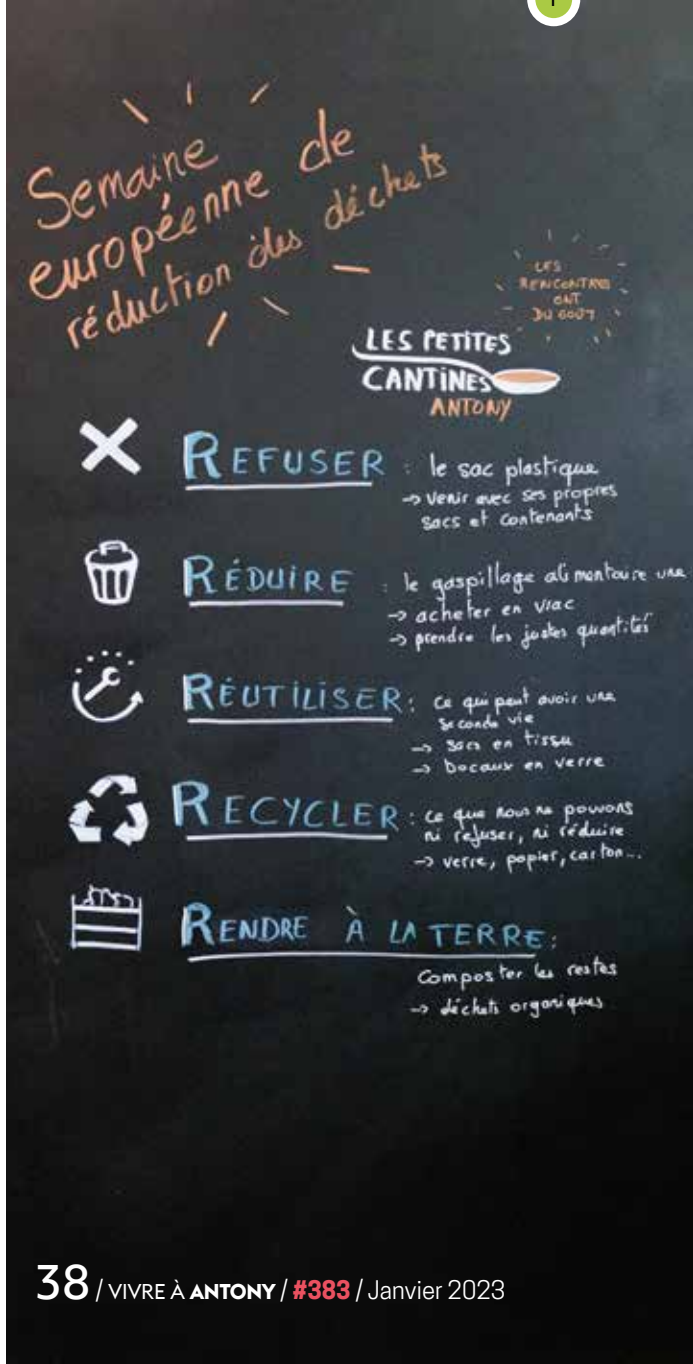 Semaine
européenne de
réduction des déchets
LES
RENCONTRES
ONT
DU GOÛT
LES PETITES
CANTINES
ANTONY
REFUSER : le sac plastique
→ venir avec ses propres
sacs et contenants
RÉDUIRE : le gaspillage alimentaire
→ acheter en vrac
→ prendre les justes quantités
RÉUTILISER : ce qui peut avoir une
seconde vie
→ sacs en tissu
→ bocaux en verre
RECYCLER : ce que nous ne pouvons
ni refuser, ni réduire
→ verre, papier, carton...
RENDRE À LA TERRE :
Composter les restes
→ déchets organiques
38 / VIVRE À ANTONY / #383 / Janvier 2023